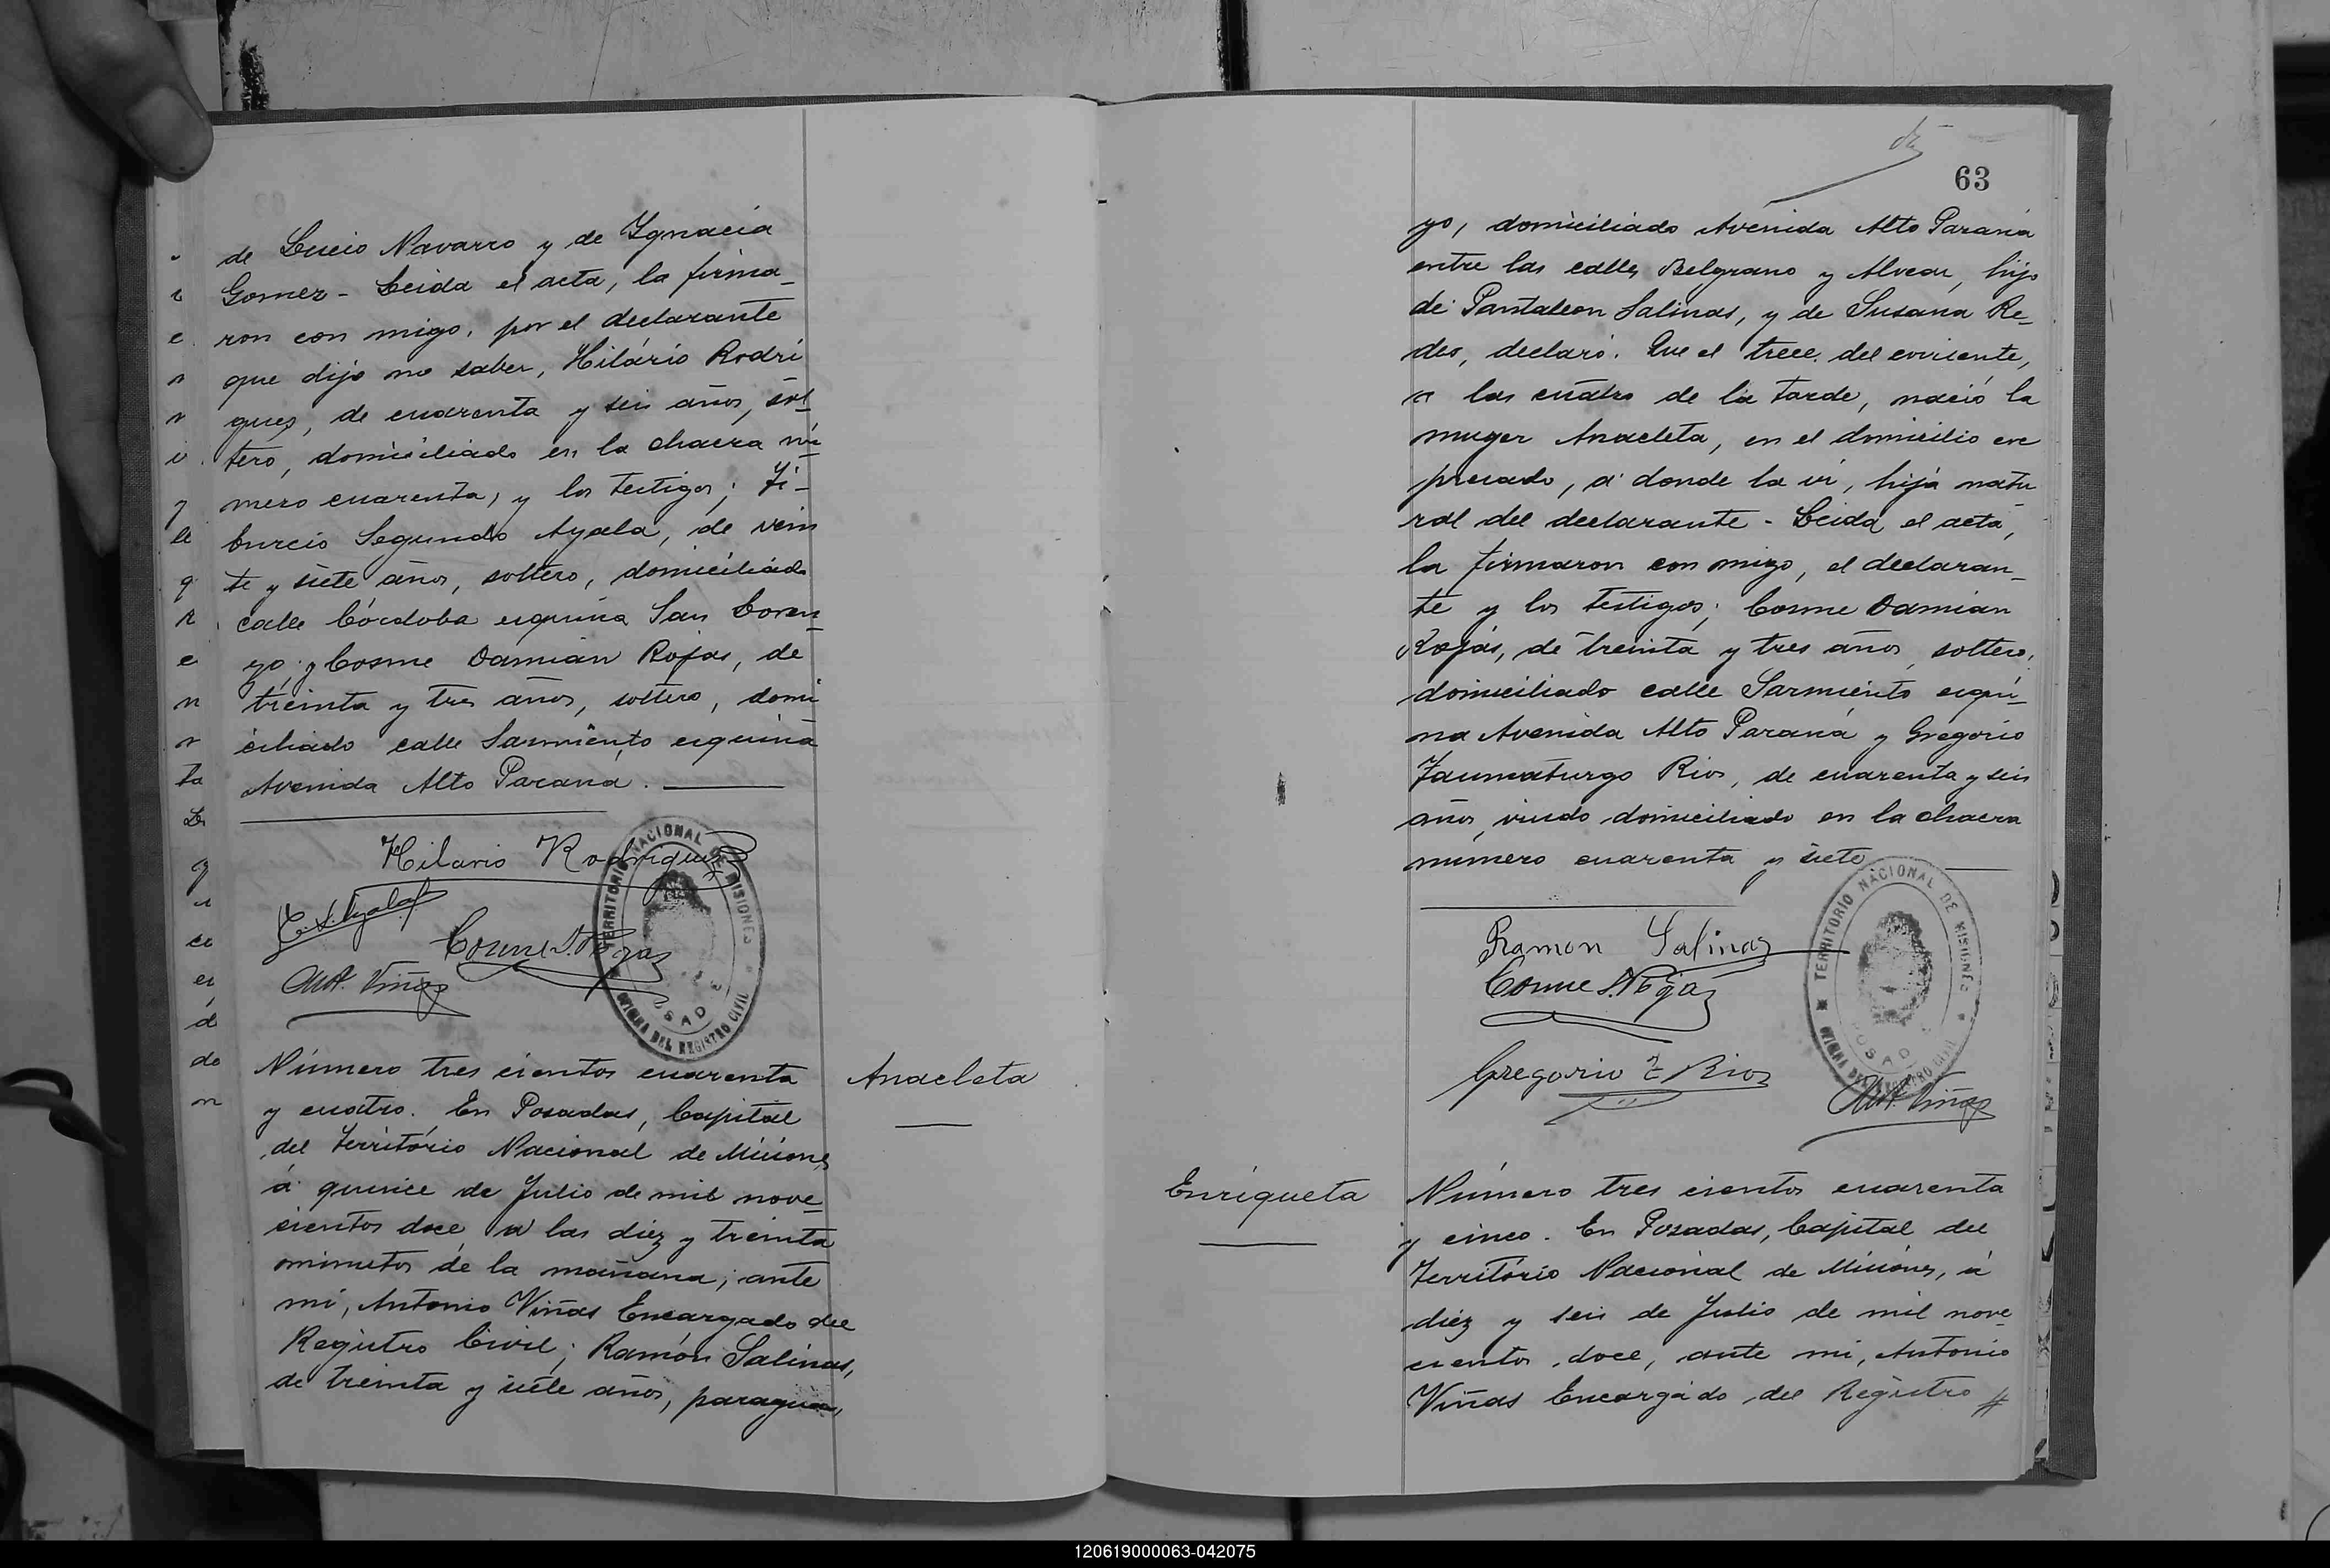 de Lucio Navarro y de Ygnacia
Gomez - Leida el acta, la firma_
ron con migo, por el declarante
que dijo no saber, Hilário Rodri
gues, de cuarenta y seis años, sol_
tero, domiciliado en la chacra nú_
mero cuarenta, y los testigos; Ti_
burcio Segundo Ayala, de vein
te y siete años, soltero, domiciliado
calle Córdoba esquina San Loren_
zo, y Cosme Damian Rojas, de
treinta y tres años, soltero, domi
ciliado calle Sarmiento esquina
Avenida Alto Paraná.
Hilario Rodrigues
T. S. Ayala
Cosme D. Rojas
Ant. Viñas
TERRITORIO NACIONAL DE MISIONES
OFICINA DEL REGISTRO CIVIL
POSADAS
Anacleta
Número tres cientos cuarenta
y cuatro. En Posadas, Capital
del Território Nacional de Misiones
á quince de Julio de mil nove_
cientos doce, a las diez y treinta
minutos de la mañana; ante
mi, Antonio Viñas Encargado del
Registro Civil; Ramón Salinas,
de treinta y siete años, paragua
63
yo, domiciliado Avenida Alto Paraná
entre las calles Belgrano y Alvear, hijo
de Pantaleon Salinas, y de Susana Re_
des, declaró: Que el trece del corriente,
a las cuatro de la tarde, nació la
muger Anacleta, en el domicilio exe
presado, á donde la ví, hija natu_
ral del declarante - Leida el acta,
la firmaron con migo, el declaran_
te y los testigos; Cosme Damian
Rojas, de treinta y tres años, soltero,
domiciliado calle Sarmiento esqui_
na Avenida Alto Paraná y Gregorio
Taumaturgo Rios, de cuarenta y seis
años, viudo domiciliado en la chacra
número cuarenta y siete
Ramon Salinas
Cosme D. Rojas
Gregorio T Rios
Ant. Viñas
TERRITORIO NACIONAL DE MISIONES
OFICINA DEL REGISTRO CIVIL
POSADAS
Enriqueta
Número tres cientos cuarenta
y cinco. En Posadas, Capital del
Território Nacional de Misiones, á
diez y seis de Julio de mil nove_
cientos doce, ante mi, Antonio
Viñas Encargado del Registro #
120619000063-042075